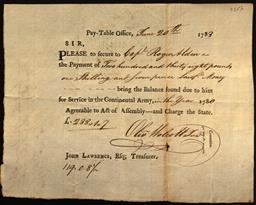 Pay-Table Office, June 20th 1783
SIR,
PLEASE to secure to Capt Roger Alden
the Payment of Two hundred and thirty eight pounds
one Shilling and
being the Balance found due to him
for Service in the Continental Army, in the Year 1780
Agreeable to Act of Assembly—and Charge the State.
JOHN LAWRENCE, Esq; Treasurer.